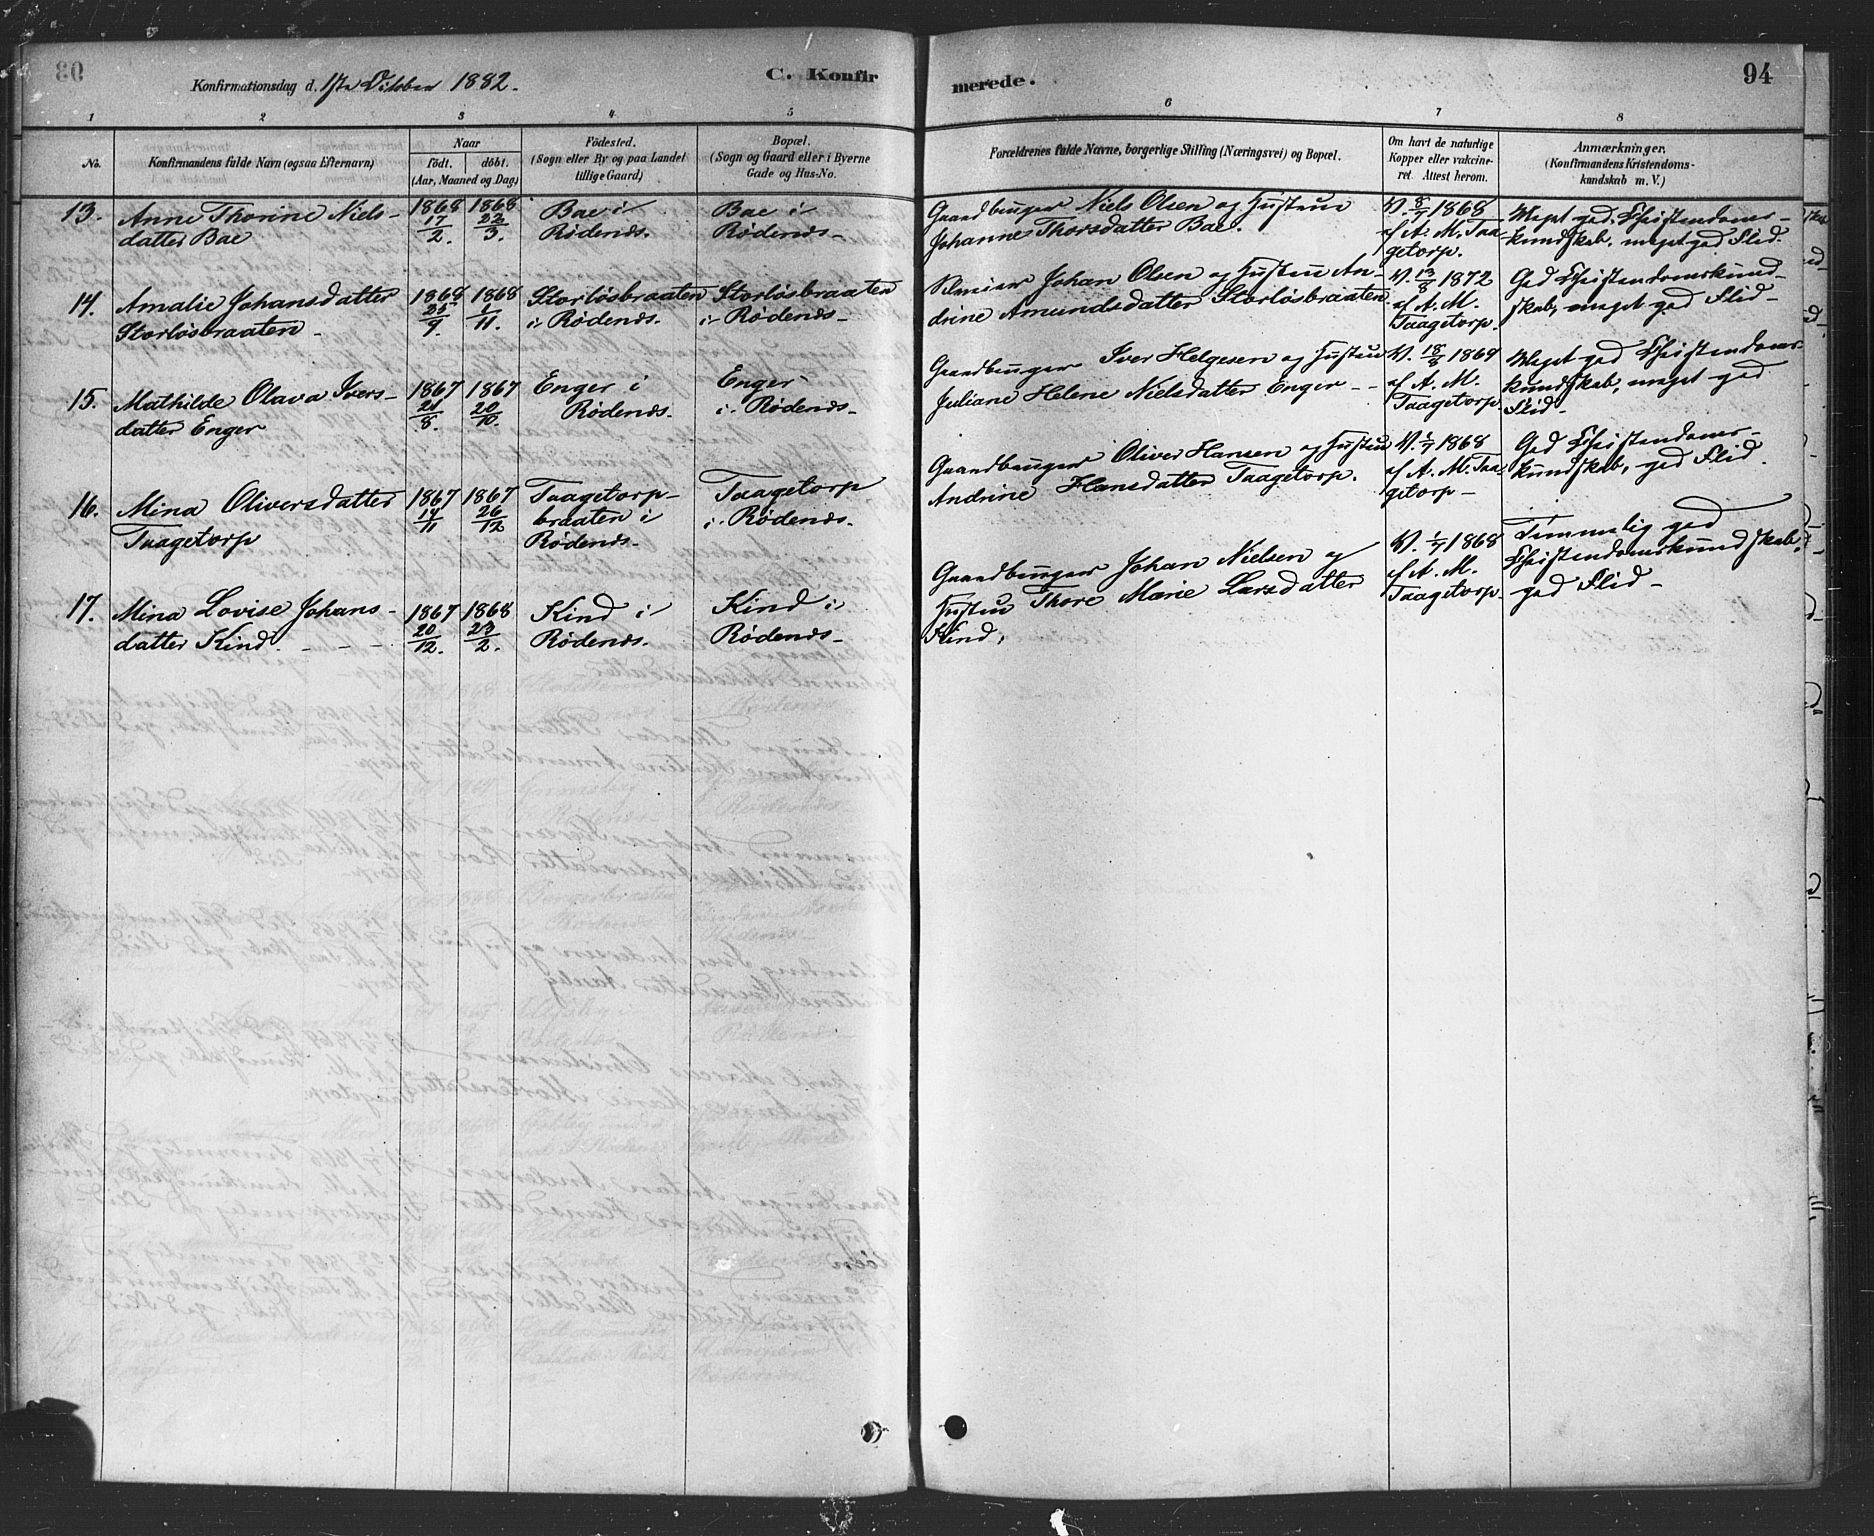 Konfirmationsdag d. 1ste October 1882.
C. Konfirmerede.
94
1 2 3 4 5 6 7 8
No.
Konfirmandens fulde Navn (ogsaa Efternavn)
Naar
födt. döbt.
(Aar, Maaned og Dag)
Födested.
(Sogn eller By og paa Landet
tillige Gaard)
Bopæl.
(Sogn og Gaard eller i Byerne
Gade og Hus-No.
Forældrenes fulde Navne, borgerlige Stilling (Næringsvei) og Bopæl.
Om havt de naturlige
Kopper eller vakcine-
ret. Attest herom.
Anmærkninger.
(Konfirmandens Kristendoms-
kundskab m. V.)
13. Anne Thorine Niels-
datter Bae
1868 17/2.
1868 22/3.
Bae i
Rødenæs.
Bae i
Rødenæs-
Gaardbruger Niels Olsen og Hustru
Johanne Thorsdatter Bae.
V. 8/7 1868
af A. M. Taa-
getorp.
Meget god Christendoms-
kundskab, meget god Flid.
14. Amalie Johansdatter
Storløsbraaten -
1868 25/9.
1868 1/11.
Storløsbraaten
i Rødenæs.
Storløsbraaten
i Rødenæs-
Johan Olsen og Hustru An-
drine Amundsdatter Storløsbraaten
V. 13/8 1872
af A. M.
Taagetorp.
God Christendomskund-
skab, meget god Flid-
15. Mathilde Olava Ivers-
datter Enger
1867 /8.
1867 20/10.
Enger i
Rødenæs.
Enger
i Rødenæs-
Gaardbruger Iver Helgesen og Hustru
Juliane Helene Nielsdatter Enger - -
V. 18/8 1869
af A. M.
Taagetorp.
Meget god Christendoms-
kundskab, meget god
Flid-
16. Mina Oliversdatter
Taagetorp
1867 14/11
1867 26/12
Taagetorp-
braaten i
Rødenæs-
Taagetorp
i Rødenæs.
Gaardbruger Oliver Hansen og Hustru
Andrine Hansdatter Taagetorp.
V. 1/7 1868
af A. M. Taa-
getorp-
God Christendoms-
kundskab, god Flid.
17. Mina Lovise Johans-
datter Kind. - - -
1867 20/12.
1868 23/2.
Kind i
Rødenæs.
Kind i
Rødenæs-
Gaardbruger Johan Nielsen og
Hustru Thore Marie Larsdatter
Kind.
V. 1/7 1868
af A. M.
Taagetorp-
Temmelig god
Christendomskundskab,
god Flid-